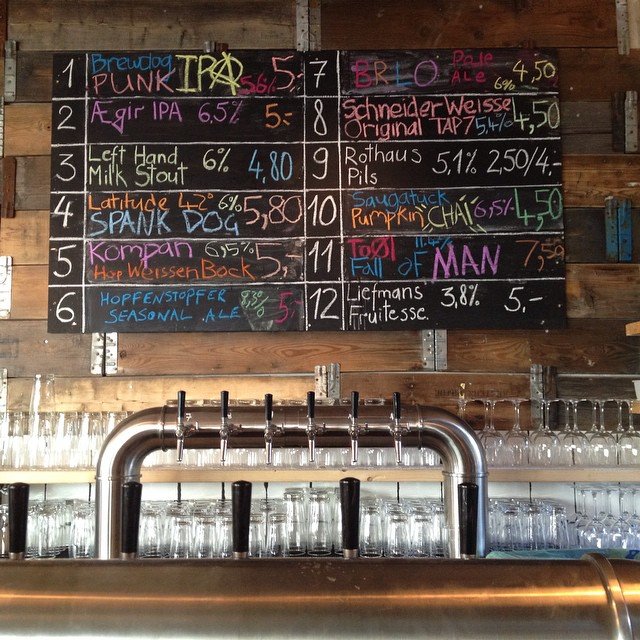 1 Brewdog
PUNK IPA 5,6% 5,-
2 Ægir IPA 6,5% 5,-
3 Left Hand
Milk Stout 6% 4,80
4 Latitude 42° 6%
SPANK DOG 5,80
5 Kompan 6,5%
Hop WeissenBock 5,-
6. HOPFENSTOPFER
SEASONAL ALE 5,-
7 BRLO Pale
ALE 6% 4,50
8 Schneider Weisse
Original TAP7 5,4% 4,50
9 Rothaus
Pils 5,1% 2,50/4,-
10 Saugatuck
Pumpkin CHAI 6,5% 4,50
11 ToØl 11.4%
Fall OF MAN 7,50
12 Liefmans
Fruitesse 3,8% 5,-